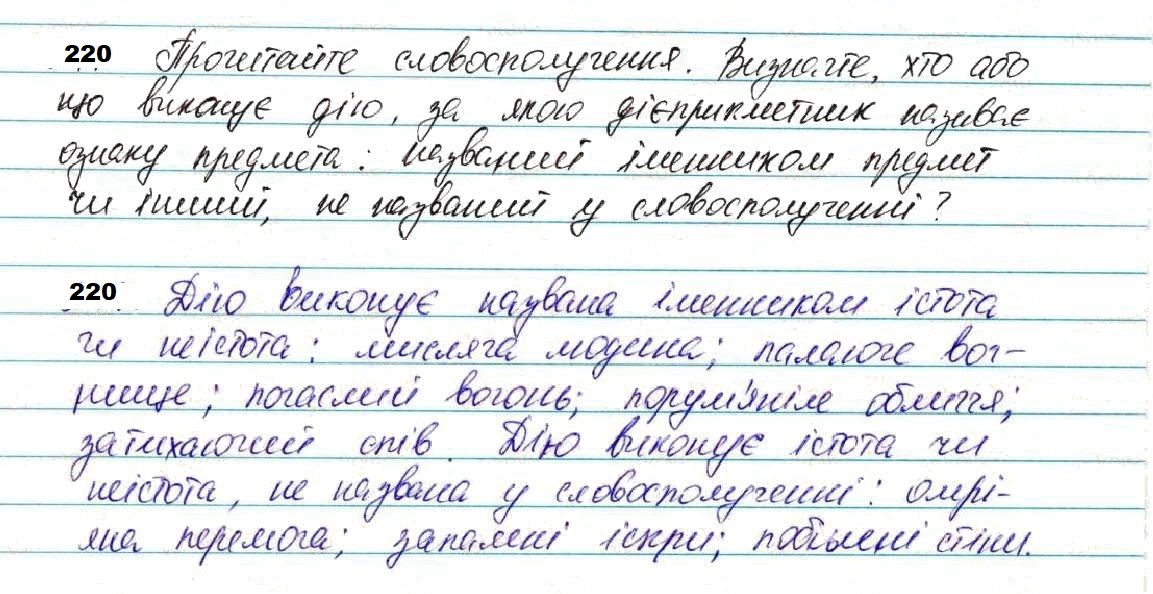 220 Прочитайте словосполучення. Визначте, хто або
що виконує дію, за якою дієприкметник називає
ознаку предмета: названий іменником предмет
чи інший, не названий у словосполученні?
220 Дію виконує названа іменником істота
чи неістота: мисляча людина; палаюче вог-
нище; погаслий вогонь; порум'яніле обличчя;
затихаючий спів. Дію виконує істота чи
неістота, не названа у словосполученні: омрі-
яна перемога; запалені іскри; побілені стіни.